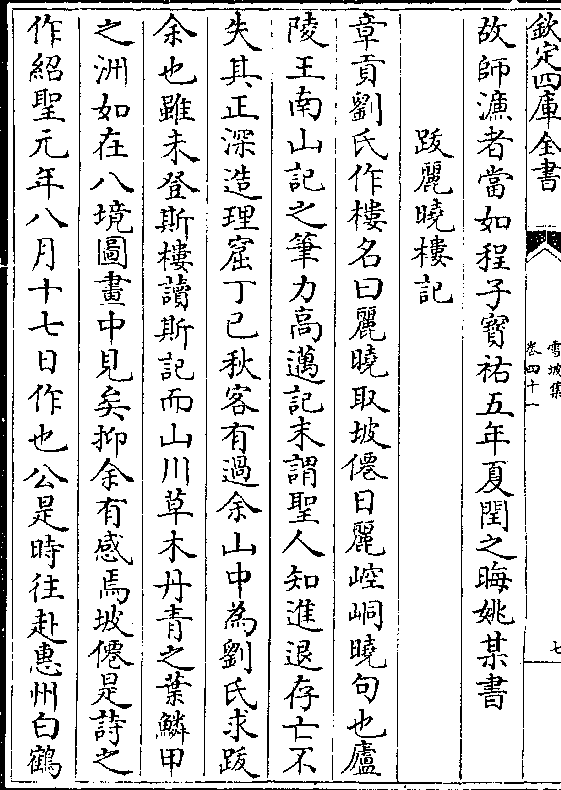 欽定四庫全書
雪坡集
卷四十一
七
故師濂者當如程子寶祐五年夏閏之晦姚某書
跋麗曉樓記
章貢劉氏作樓名曰麗曉取坡僊日麗崆峒曉句也廬
陵王南山記之筆力高邁記末謂聖人知進退存亡不
失其正深造理窟丁已秋客有過余山中為劉氏求跋
余也雖未登斯樓讀斯記而山川草木丹青之葉鱗甲
之洲如在八境圖畫中見矣抑余有感焉坡僊是詩之
作紹聖元年八月十七日作也公是時往赴惠州白鶴